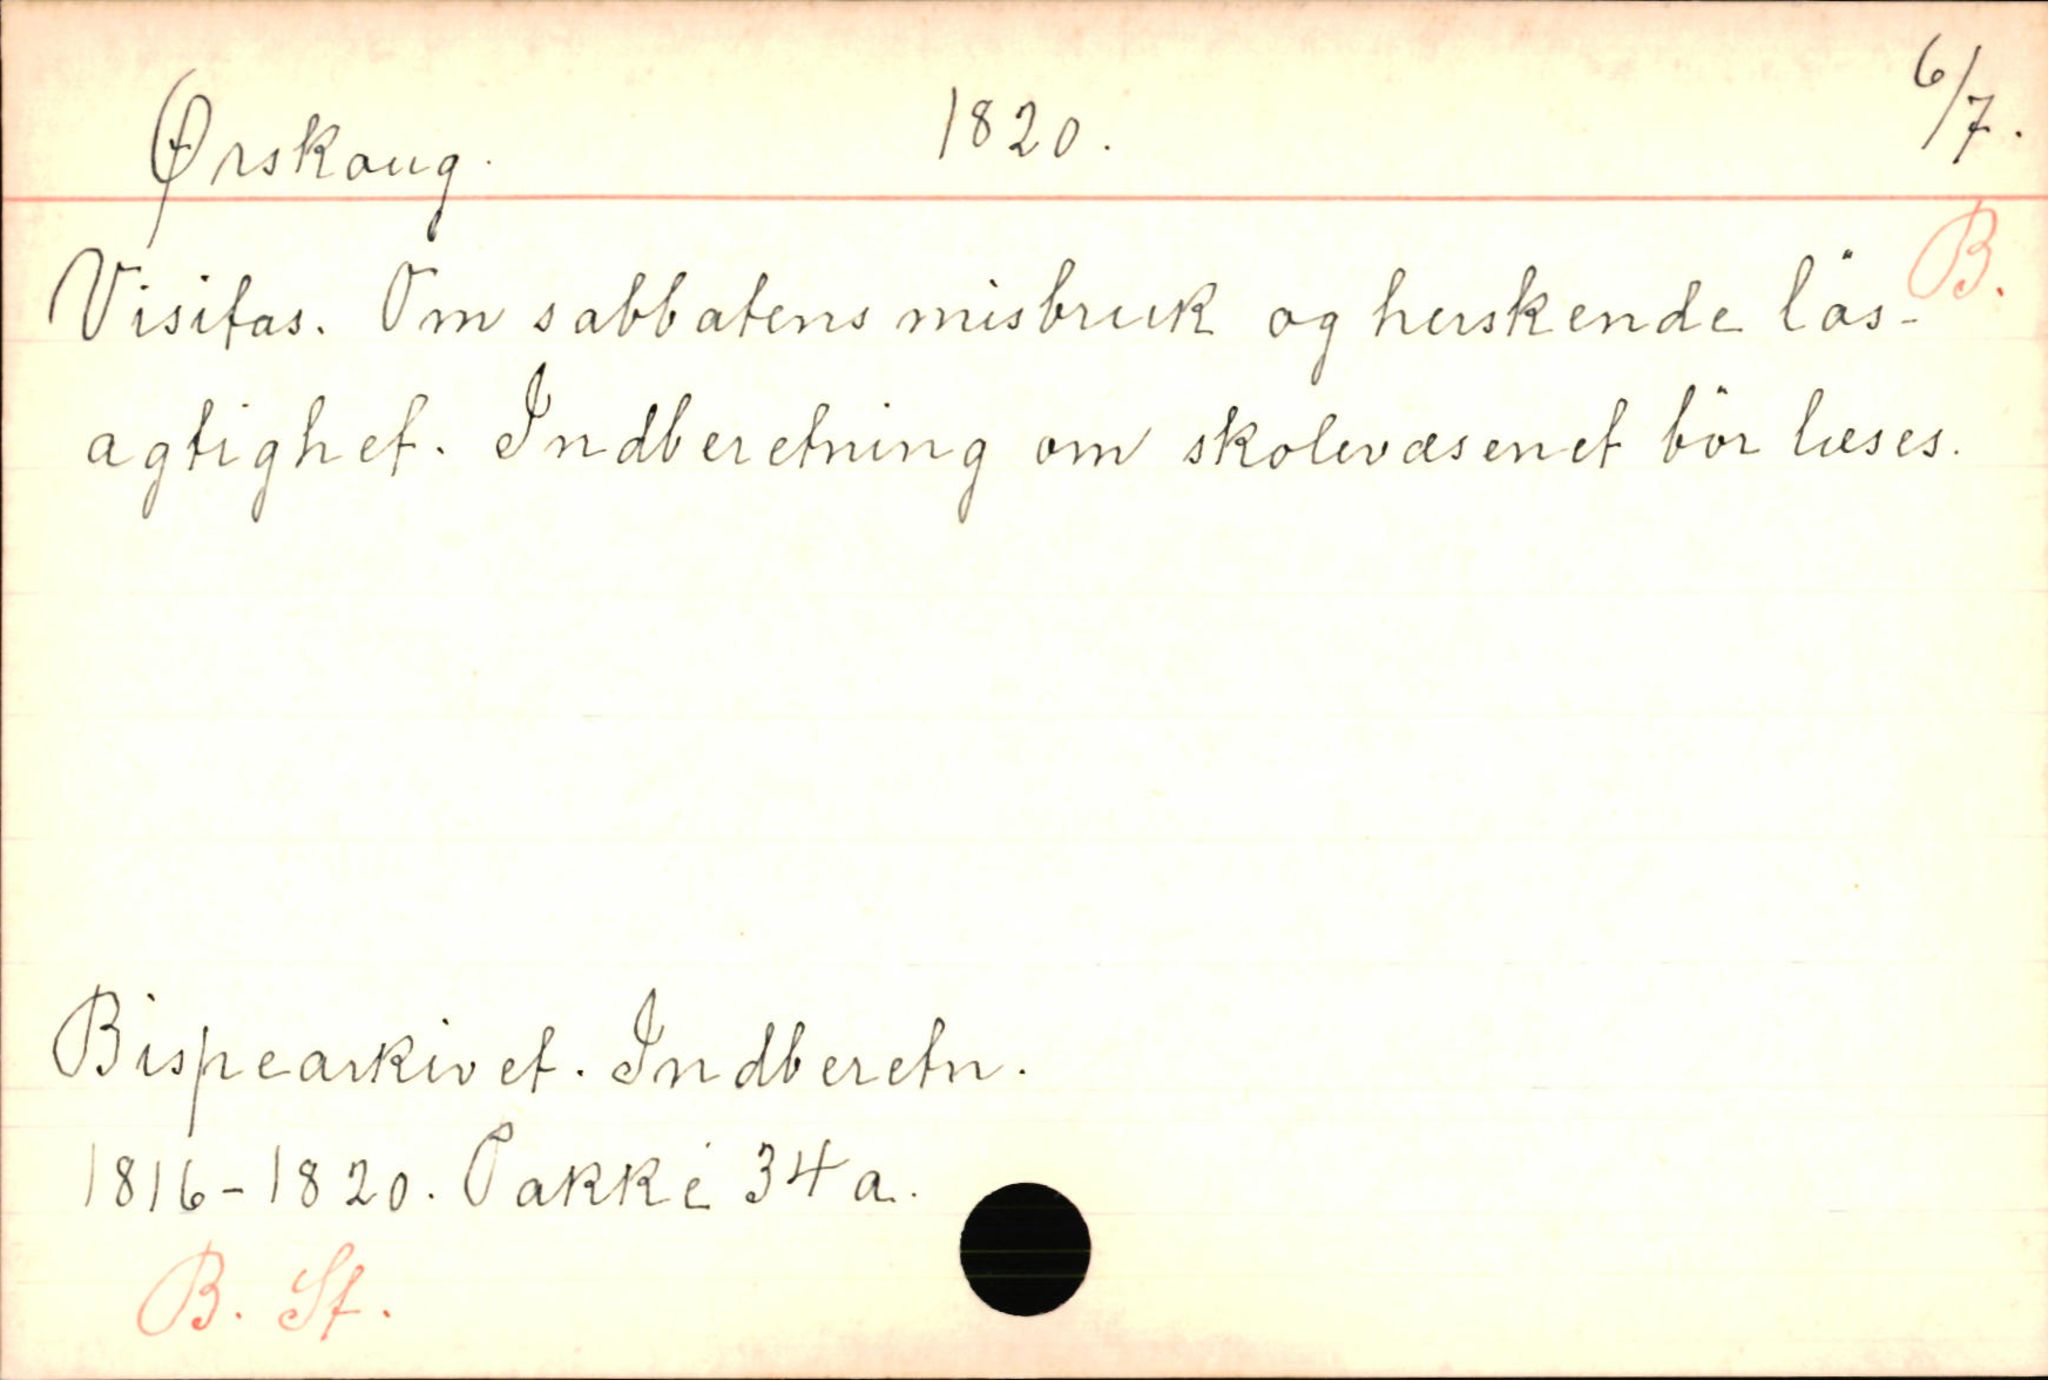 Ørskoug. 1820. 6/7.
B.
Visitas. Om sabbatens misbruk og herskende lös-
agtighet. Indberetning om skolevæsenet bör læses.
Bispearkivet. Indberetn.
1816-1820. Pakke 34a.
B. St.